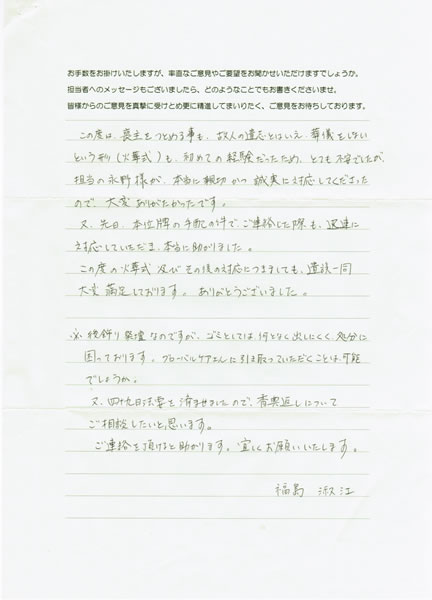 お手数をお掛けいたしますが、率直なご意見やご要望をお聞かせいただけますでしょうか。
担当者へのメッセージもございましたら、どのようなことでもお書きくださいませ。
皆様からのご意見を真摯に受けとめ更に精進してまいりたく、ご意見をお待ちしております。
この度は、喪主をつとめる事も、故人の遺志とはいえ、葬儀をしない
という形(火葬式)も、初めての経験だったため、とても不安でしたが、
担当の永野様が、本当に親切かつ誠実に対応してくださった
ので、大変ありがたかったです。
又、先日、本位牌の手配の件でご連絡した際も、迅速に
対応していただき、本当に助かりました。
この度の火葬式及びその後の対応につきましても、遺族一同
大変満足しております。ありがとうございました。
※後飾り祭壇なのですが、ゴミとしては何となく出しにくく、処分に
困っております。グローバルケアさんに引き取っていただくことは可能
でしょうか。
又、四十九日法要を済ませましたので、香典返しについて
ご相談したいと思います。
ご連絡を頂けると助かります。宜しくお願いいたします。
福島 淑江